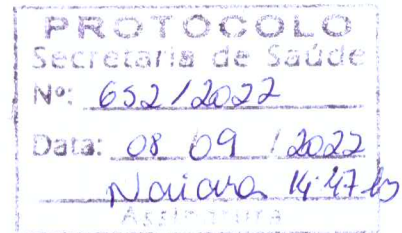 PROTOCOLO
Secretaria de Saúde
Nº: 652/2022
Data: 08 09 / 2022
Naiara 14:47 hs
Assinatura